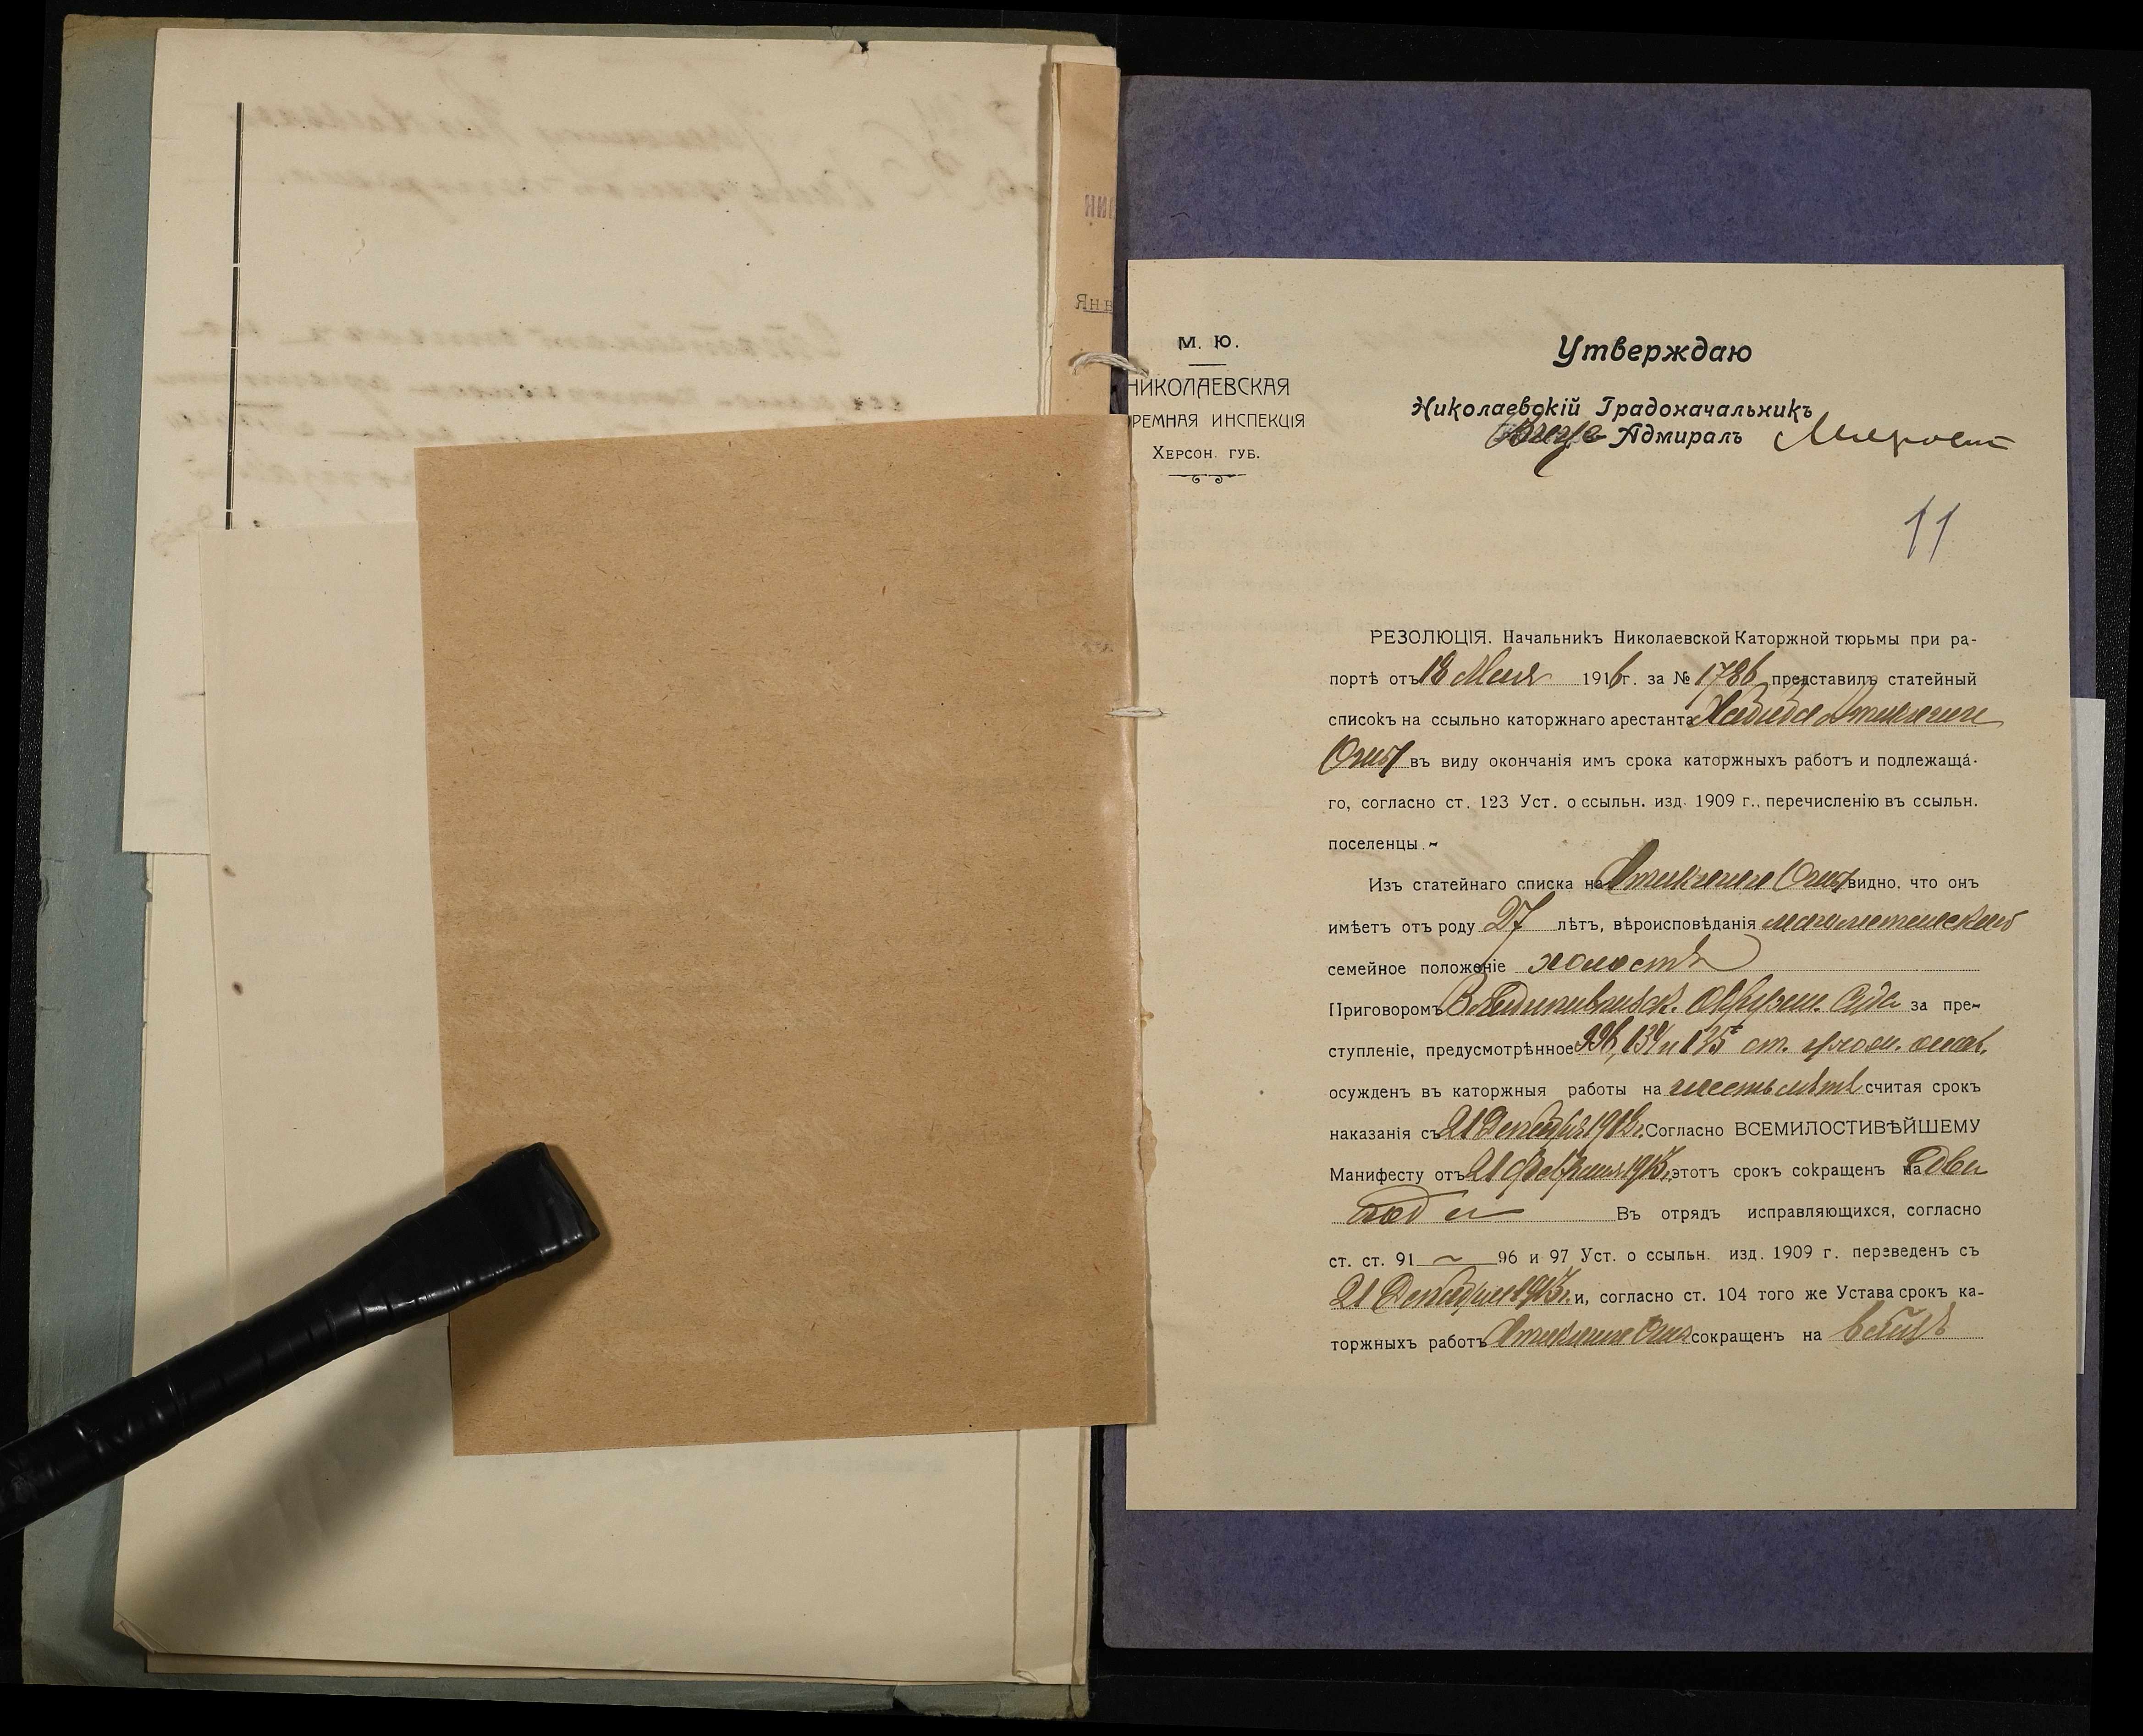 М. Ю.
НИКОЛАЕВСКАЯ
РЕМНАЯ ИНСПЕКЦІЯ
ХЕРСОН. ГУБ.
Утверждаю
Николаевскій Градоначальникъ
Вице Адмиралъ
11
Янв
РЕЗОЛЮЦІЯ. Начальникъ Николаевской Каторжной тюрьмы при ра-
портѣ отъ 18 Мая 1916 г. за № 1786 представилъ статейный
списокъ на ссыльно каторжнаго арестанта
Оглы въ виду окончанія имъ срока каторжныхъ работъ и подлежаща-
го, согласно ст. 123 Уст. о ссыльн. изд. 1909 г., перечисленію въ ссыльн.
поселенцы.
Изъ статейнаго списка на Оглы видно, что онъ
имѣетъ отъ роду 27 лѣтъ, вѣроисповѣданія магометанскаго
семейное положеніе холостъ
Приговоромъ Владикавказск. Окружн. Суда за пре-
ступленіе, предусмотрѣнное 996, 134 и 135 ст. улож. о нак.
осужденъ въ каторжныя работы на шесть лѣтъ считая срокъ
наказанія съ 21 Декабря 1912 г. Согласно ВСЕМИЛОСТИВѢЙШЕМУ
Манифесту отъ 21 февраля 1913 г. этотъ срокъ сокращенъ на два
года Въ отрядъ исправляющихся, согласно
ст. ст. 91 ~ 96 и 97 Уст. о ссыльн. изд. 1909 г. переведенъ съ
21 Декабря 1913 г. и, согласно ст. 104 того же Устава срокъ ка-
торжныхъ работъ Оглы сокращенъ на